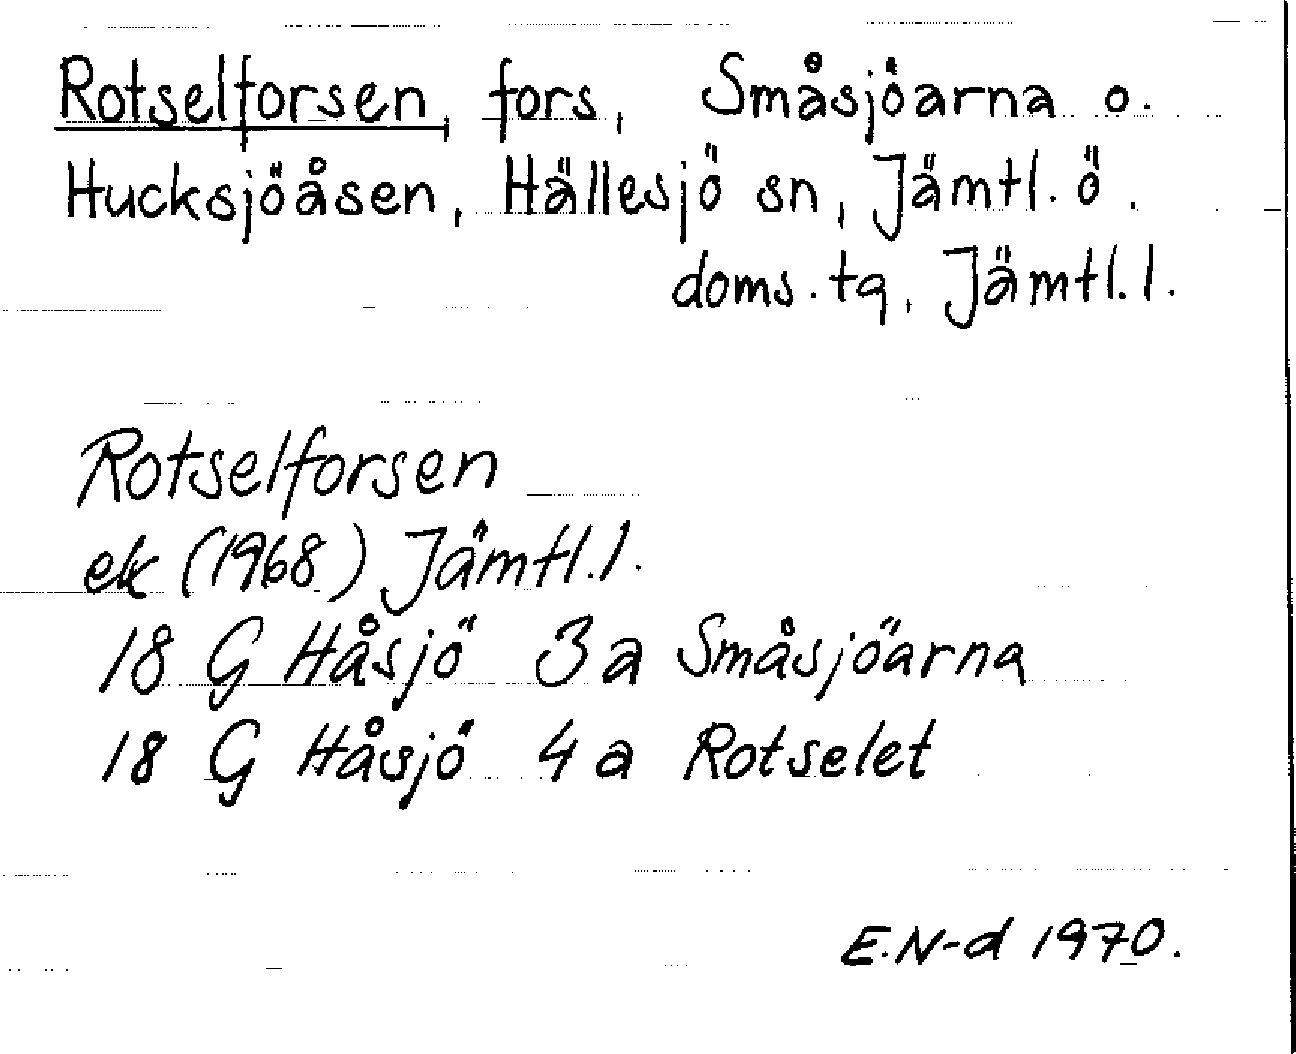 Rotselforsen, fors, Småsjöarna o.
Hucksjöåsen, Hällesjö sn, Jämtl. ö.
doms. tg, Jämtl. l.
Rotselforsen
ek (1968) Jämtl. l.
18 G Håsjö 3 a Småsjöarna
18 G Håsjö 4 a Rotselet
E.N-d 1970.